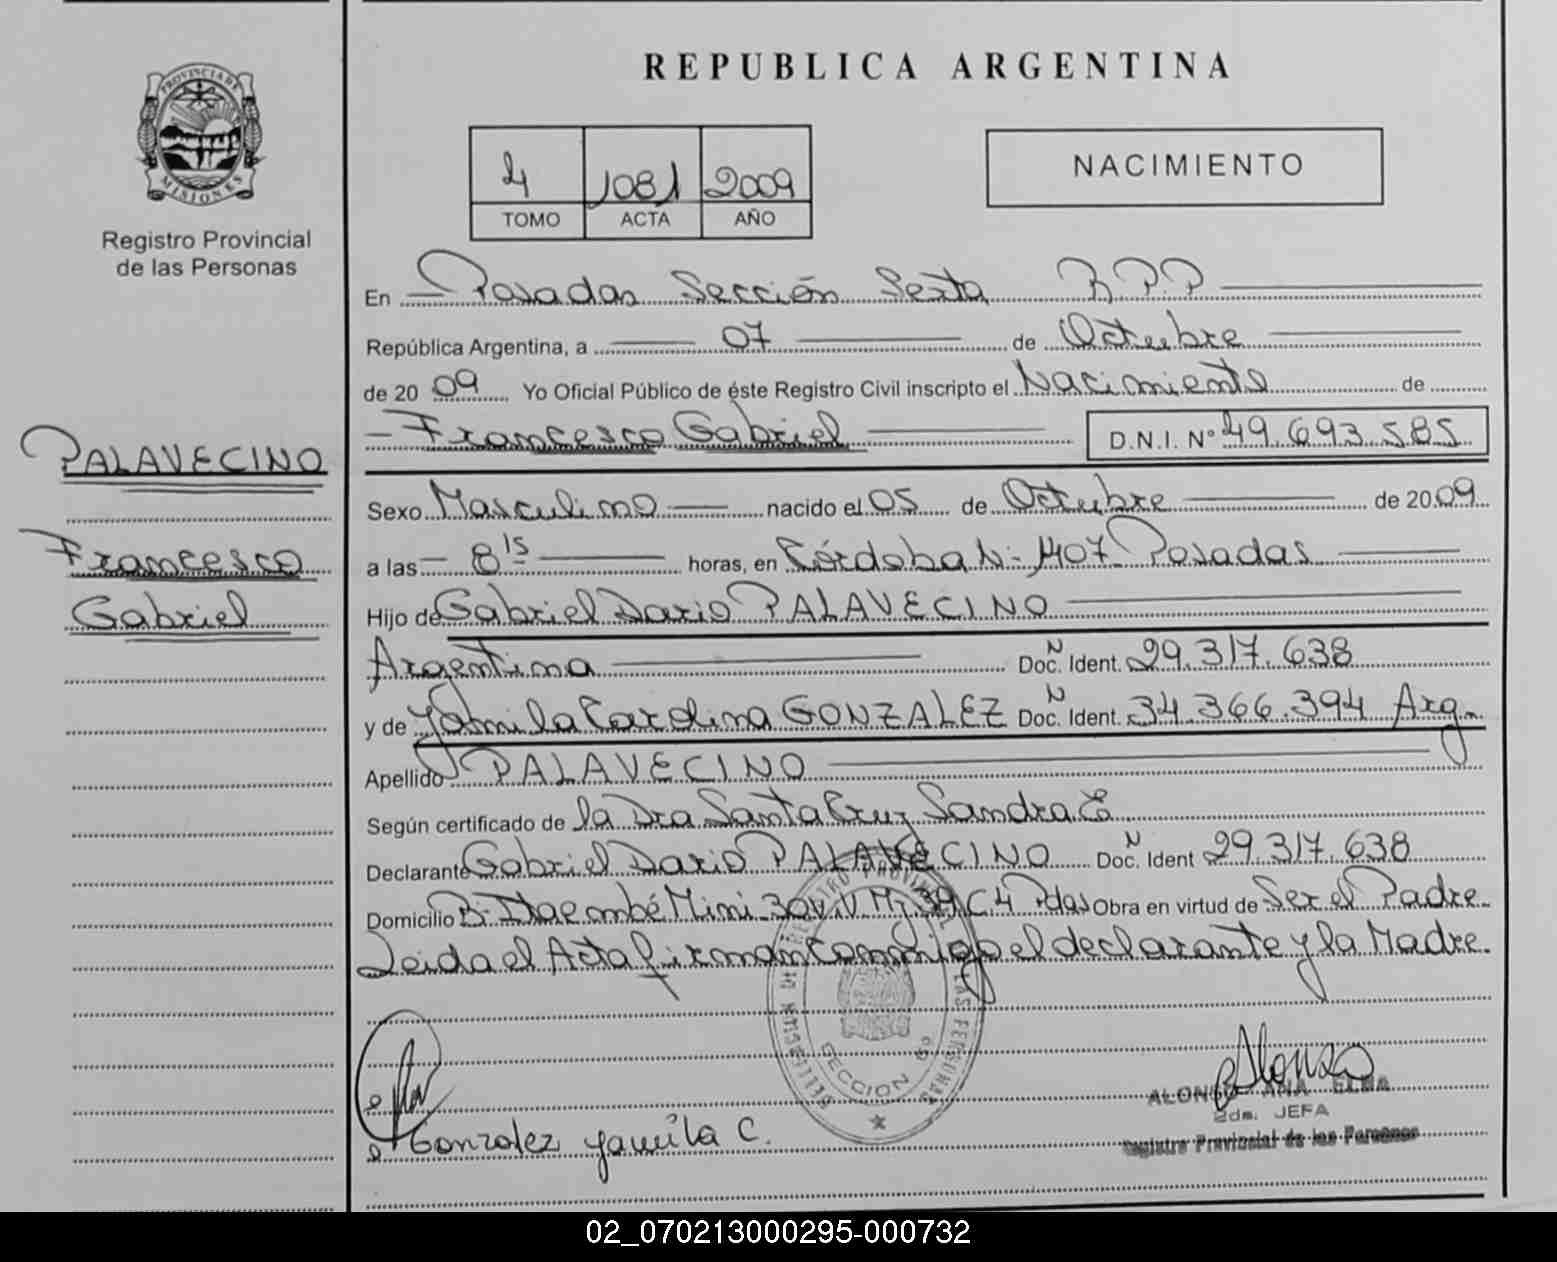 PROVINCIA DE
MISIONES
Registro Provincial
de las Personas
PALAVECINO
Francesco
Gabriel
REPUBLICA ARGENTINA
4 1081 2009
TOMO ACTA AÑO
NACIMIENTO
En Posadas Sección Sexta R.P.P
República Argentina, a 07 de Octubre
de 2009 Yo Oficial Público de éste Registro Civil inscripto el Nacimiento de
Francesco Gabriel D.N.I. N° 49.693.585
Sexo Masculino nacido el 05 de Octubre de 2009
a las 8 15 horas, en Córdoba N- 1407 Posadas
Hijo de Gabriel Dario PALAVECINO
Argentina Doc. N Ident. 29.317.638
y de Yamila Carolina GONZALEZ Doc. N Ident. 34.366.394 Arg.
Apellido PALAVECINO
Según certificado de la Dra Santa Cruz Sandra E
Declarante Gabriel Dario PALAVECINO Doc. N Ident 29.317.638
Domicilio B: Itaembé Mini 30 Viv Mz 39 C 4 Pdas Obra en virtud de Ser el Padre
Leida el Acta firman conmigo el declarante y la Madre.
SECCION 6°
ALONSO ANA ELBA
2da. JEFA
Registro Provincial de las Personas
Gonzalez Yamila C.
02_070213000295-000732